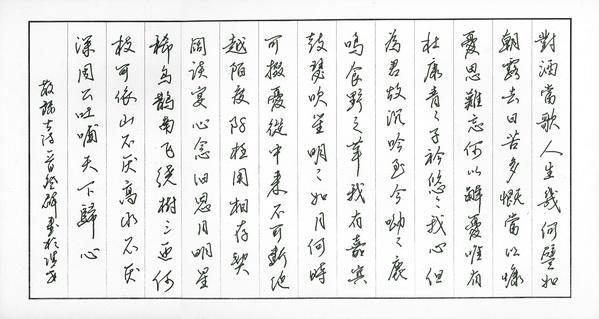 對酒當歌人生幾何譬如
朝露去日苦多慨當以慷
憂思難忘何以解憂唯有
杜康青々子衿悠々我心但
為君故沉吟至今呦々鹿
鳴食野之苹我有嘉賓
鼓瑟吹笙明々如月何時
可掇憂從中來不可斷絕
越陌度阡枉用相存契
闊談宴心念旧恩月明星
稀烏鵲南飞繞樹三匝何
枝可依山不厌高水不厌
深周公吐哺天下歸心
敬錄古詩一首